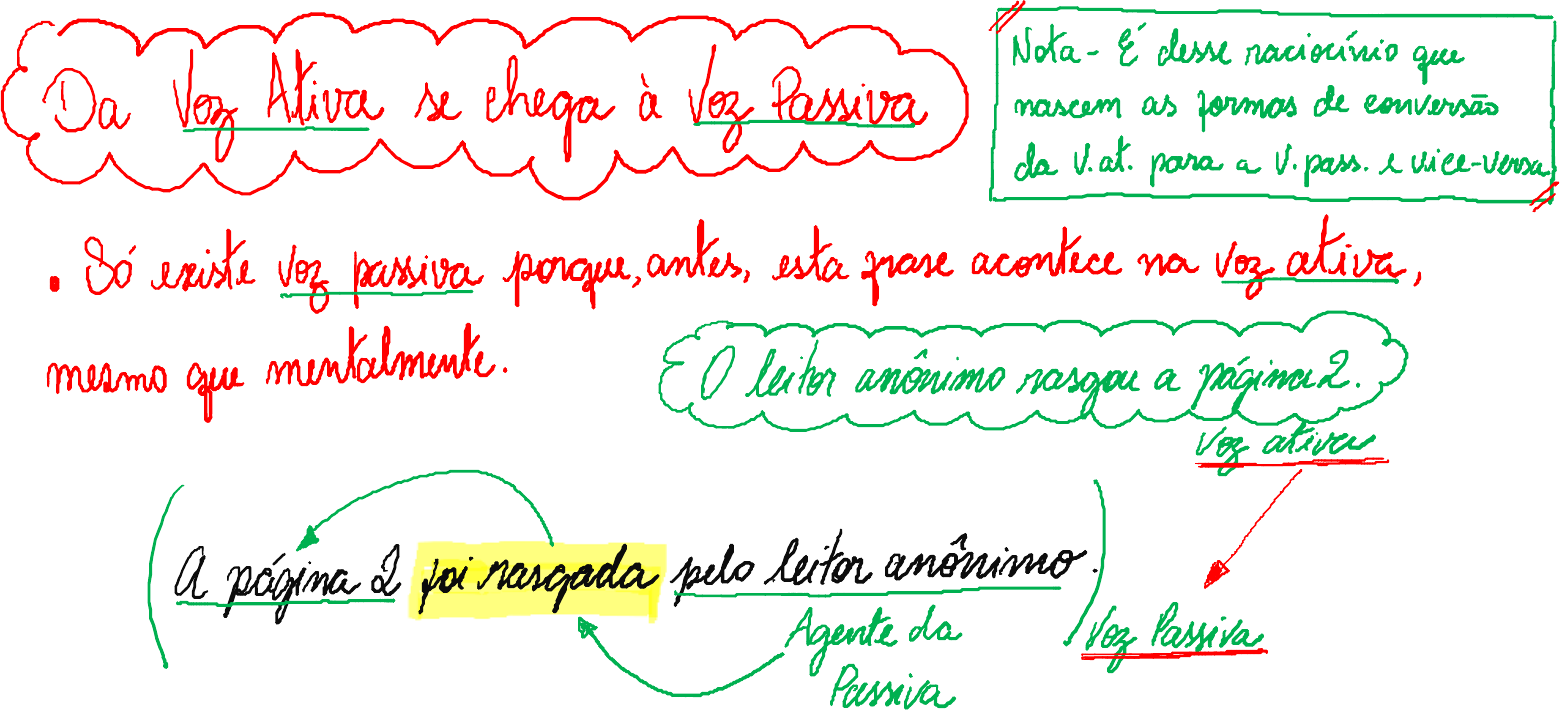 Da Voz Ativa se chega à Voz Passiva
Nota - É desse raciocínio que
nascem as formas de conversão
da V.at. para a V. pass. e vice-versa
• Só existe voz passiva porque, antes, esta frase acontece na voz ativa,
mesmo que mentalmente.
O leitor anônimo rasgou a página 2.
Voz ativa
(A página 2 foi rasgada pelo leitor anônimo.)
Agente da
Passiva
Voz Passiva